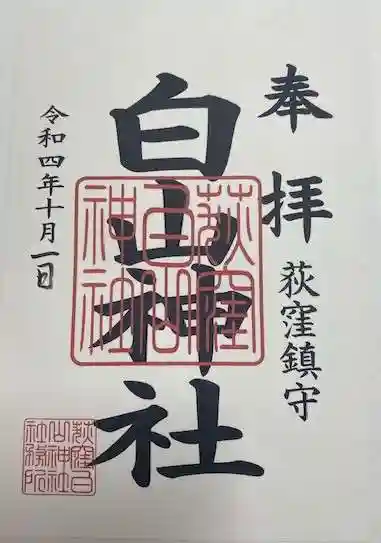 奉拝
荻窪鎮守
白山神社
荻窪白山神社
令和四年十月一日
荻窪白山神社社務所